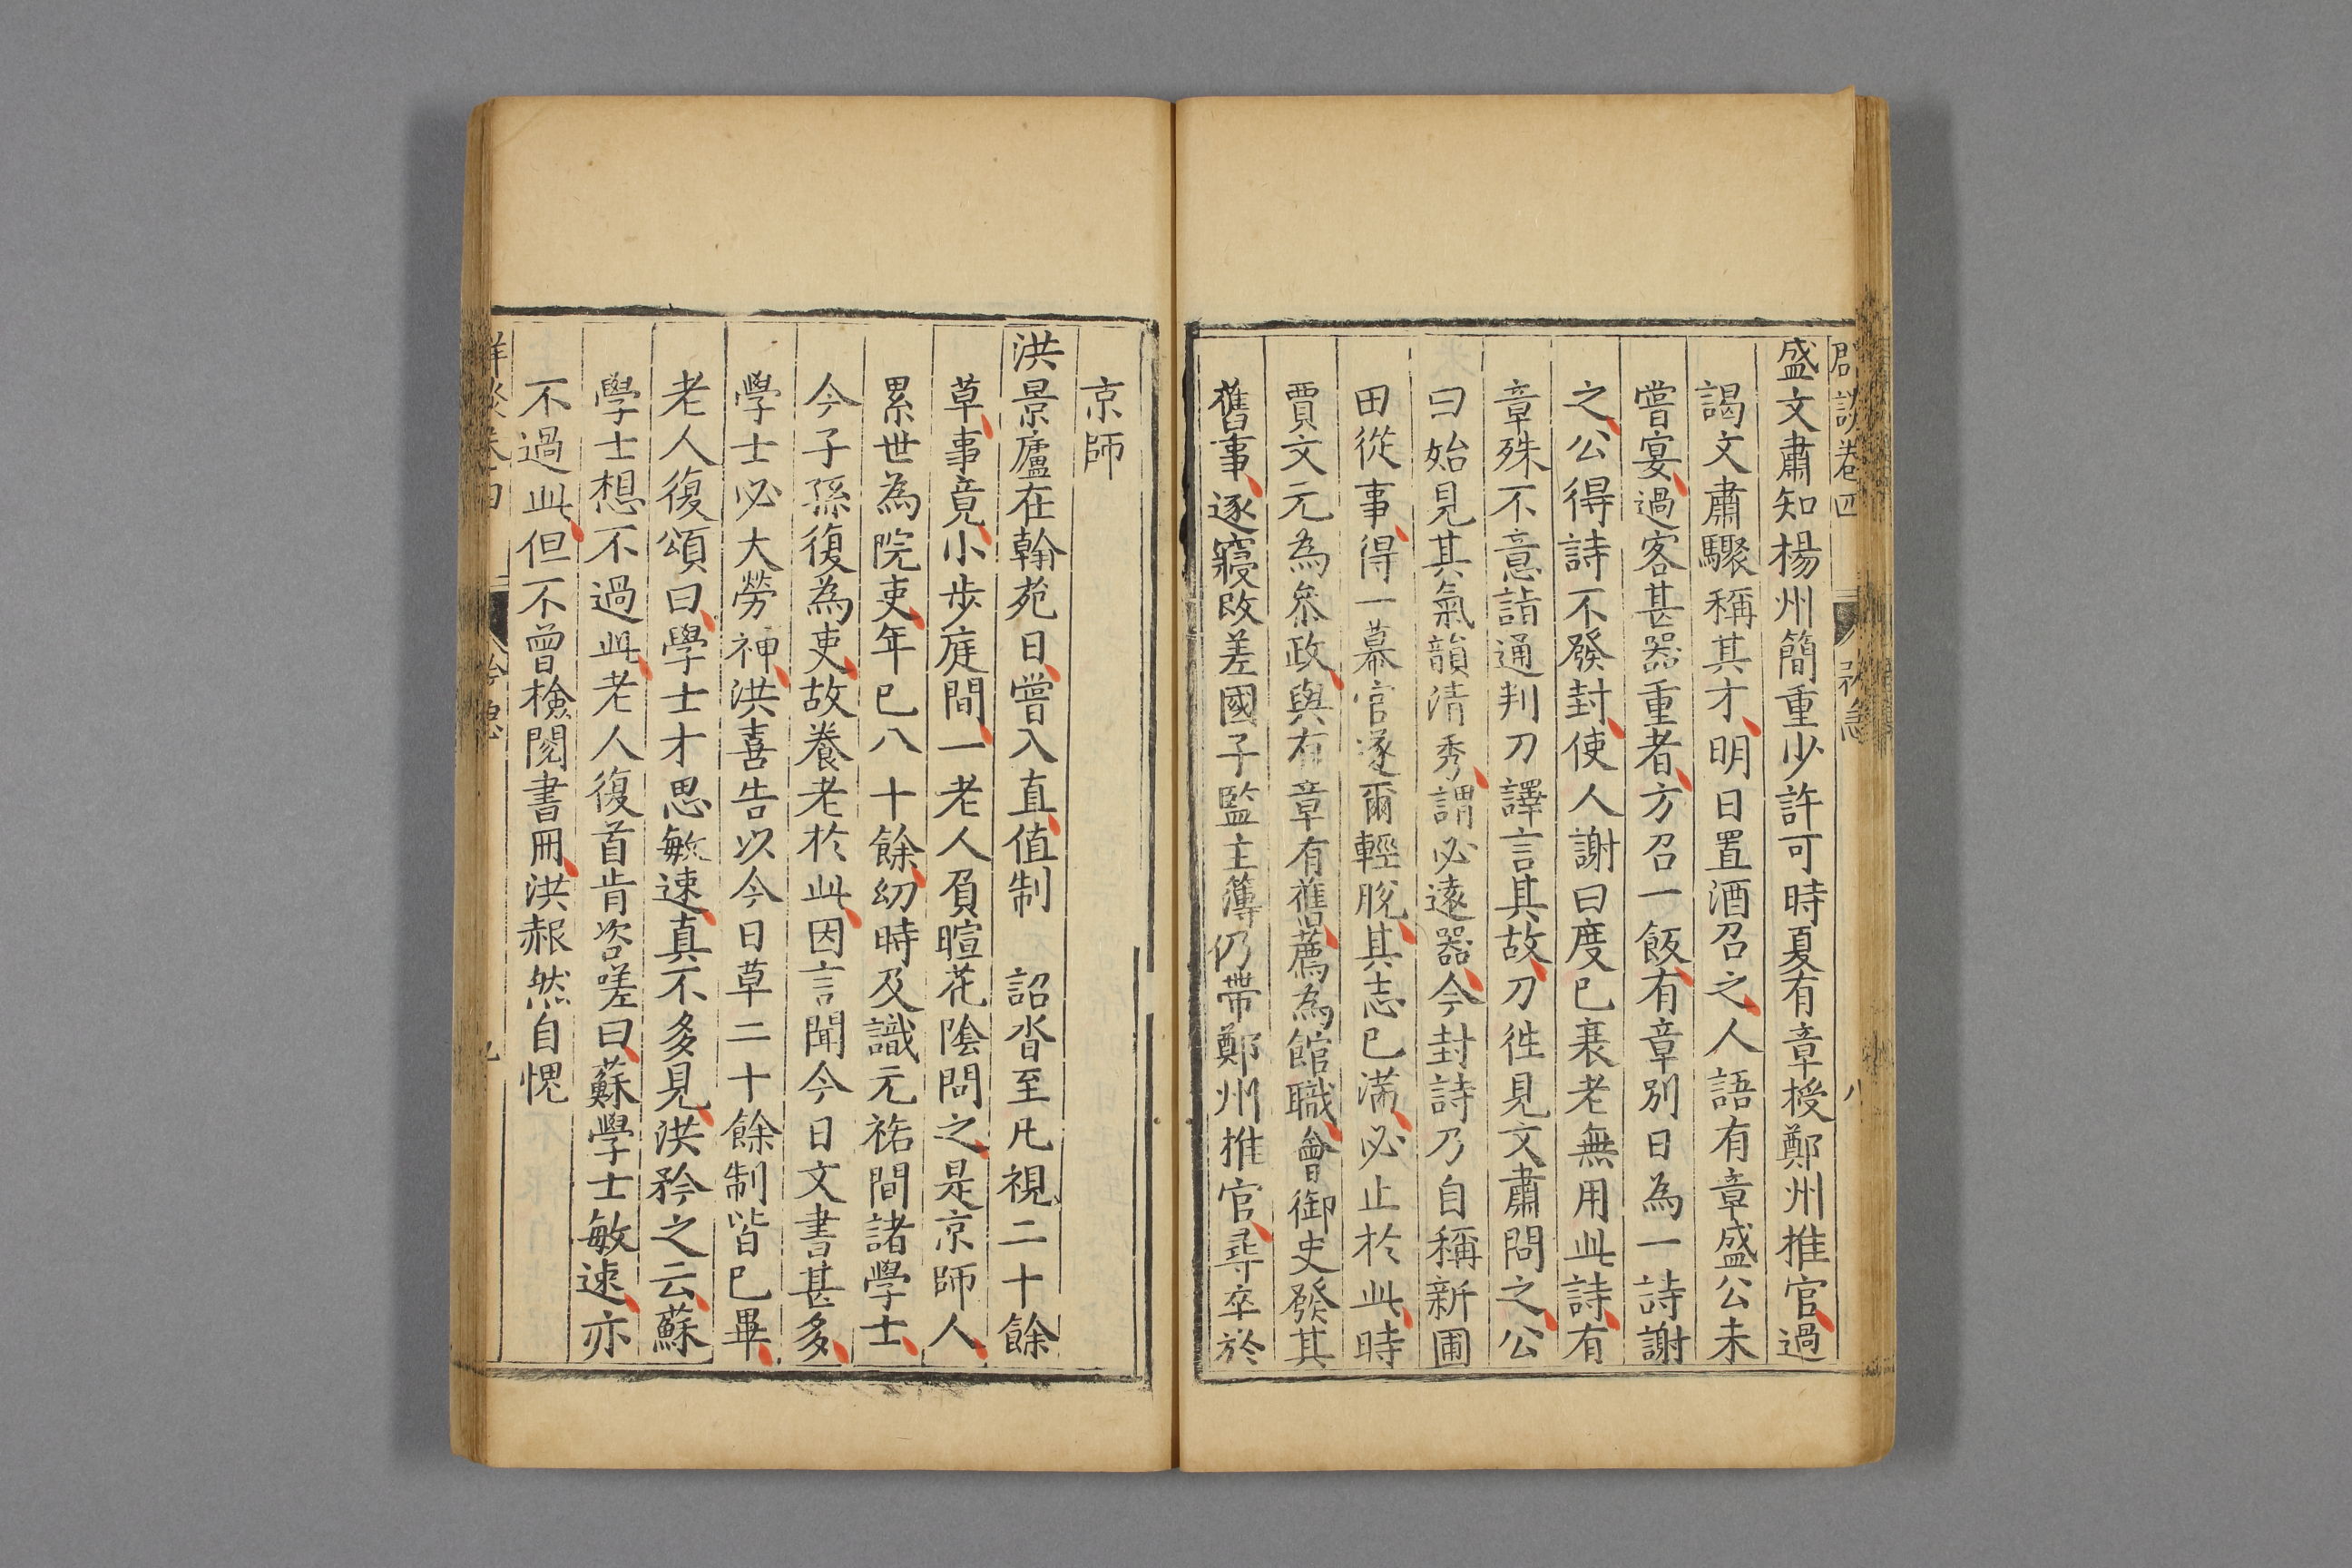 盛文肅知楊州簡重少許可時夏有章授鄭州推官過
謁文肅驟稱其才明日置酒召之人語有章盛公未
嘗宴過客甚器重者方召一飯有章別日為一詩謝
之公得詩不發封使人謝曰度已衰老無用此詩有
章殊不意詣通判刀譯言其故刀徃見文肅問之公
曰始見其氣韻清秀謂必遠器今封詩乃自稱新圃
田從事得一幕官遂爾輕脫其志已滿必止於此時
賈文元為叅政與有章有舊薦為館職會御史發其
舊事逐寢改差國子監主簿仍帶鄭州推官尋卒於
京師
洪景廬在翰苑日嘗入直值制 詔沓至凢視二十餘
草事竟小步庭間一老人負暄花陰問之是京師人
累世為院吏年已八十餘幼時及識元祐間諸學士
今子孫復為吏故養老於此因言聞今日文書甚多
學士必大勞神洪喜告以今日草二十餘制皆已畢
老人復頌曰學士才思敏速真不多見洪矜之云蘇
學士想不過此老人復首肯咨嗟曰蘇學士敏速亦
不過此但不曾檢閱書冊洪赧然自愧